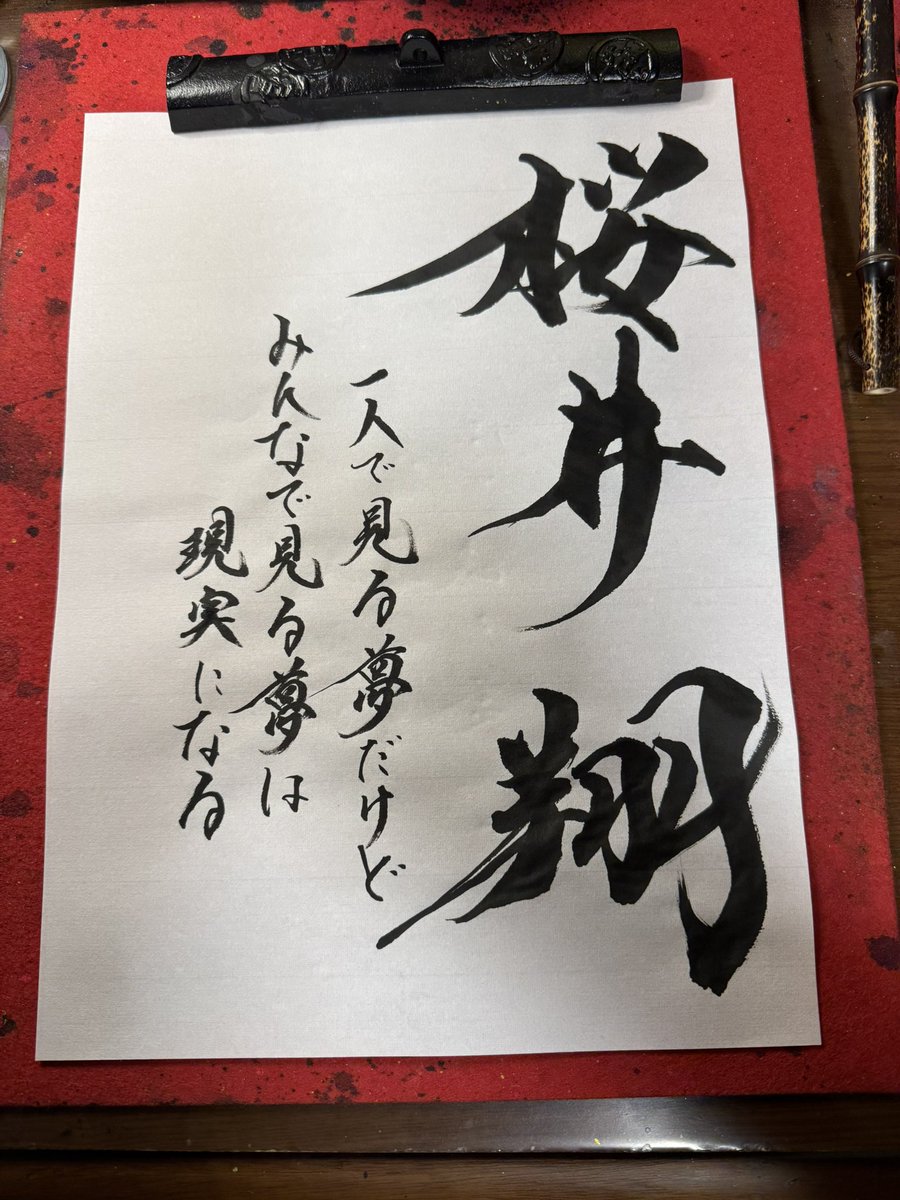 桜井翔
一人で見る夢だけど
みんなで見る夢は
現実になる